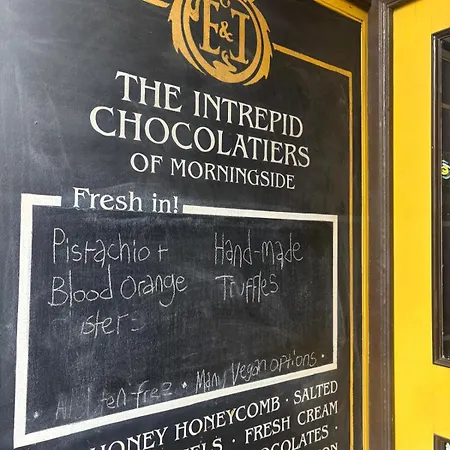 E&I
THE INTREPID
CHOCOLATIERS
OF MORNINGSIDE
Fresh in!
Pistachio +
Blood Orange
Hand-made
Truffles
free • Many Vegan options •
HONEY HONEYCOMB · SALTED
· FRESH CREAM